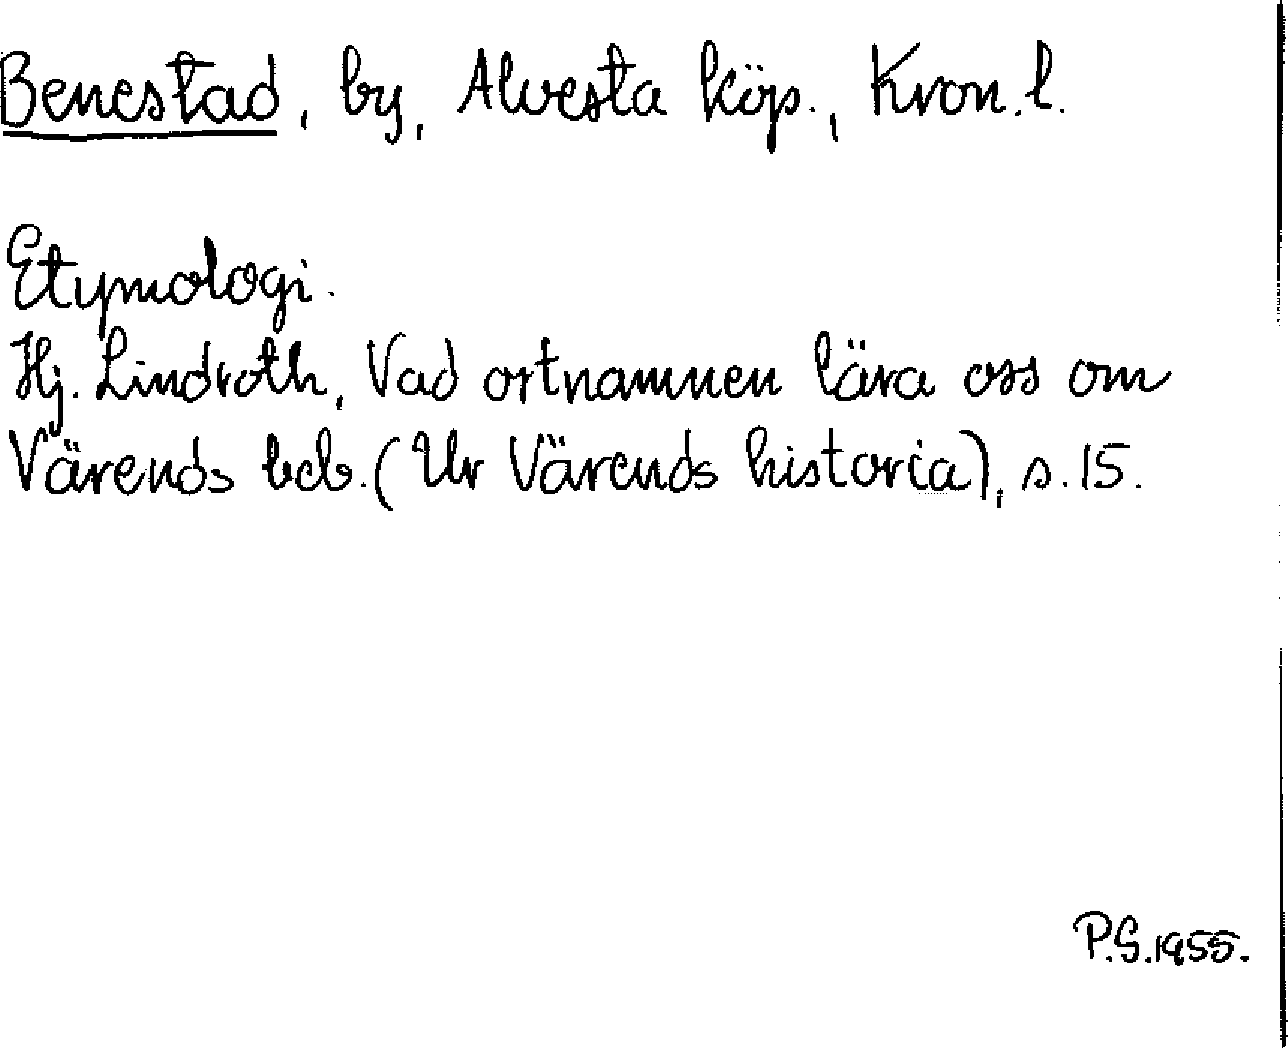 Benestad, by, Alvesta köp., Kron.l.
Etymologi.
Hj. Lindroth, Vad ortnamnen lära oss om
Värends beb. (Ur Värends historia), s. 15.
P.S. 1955.